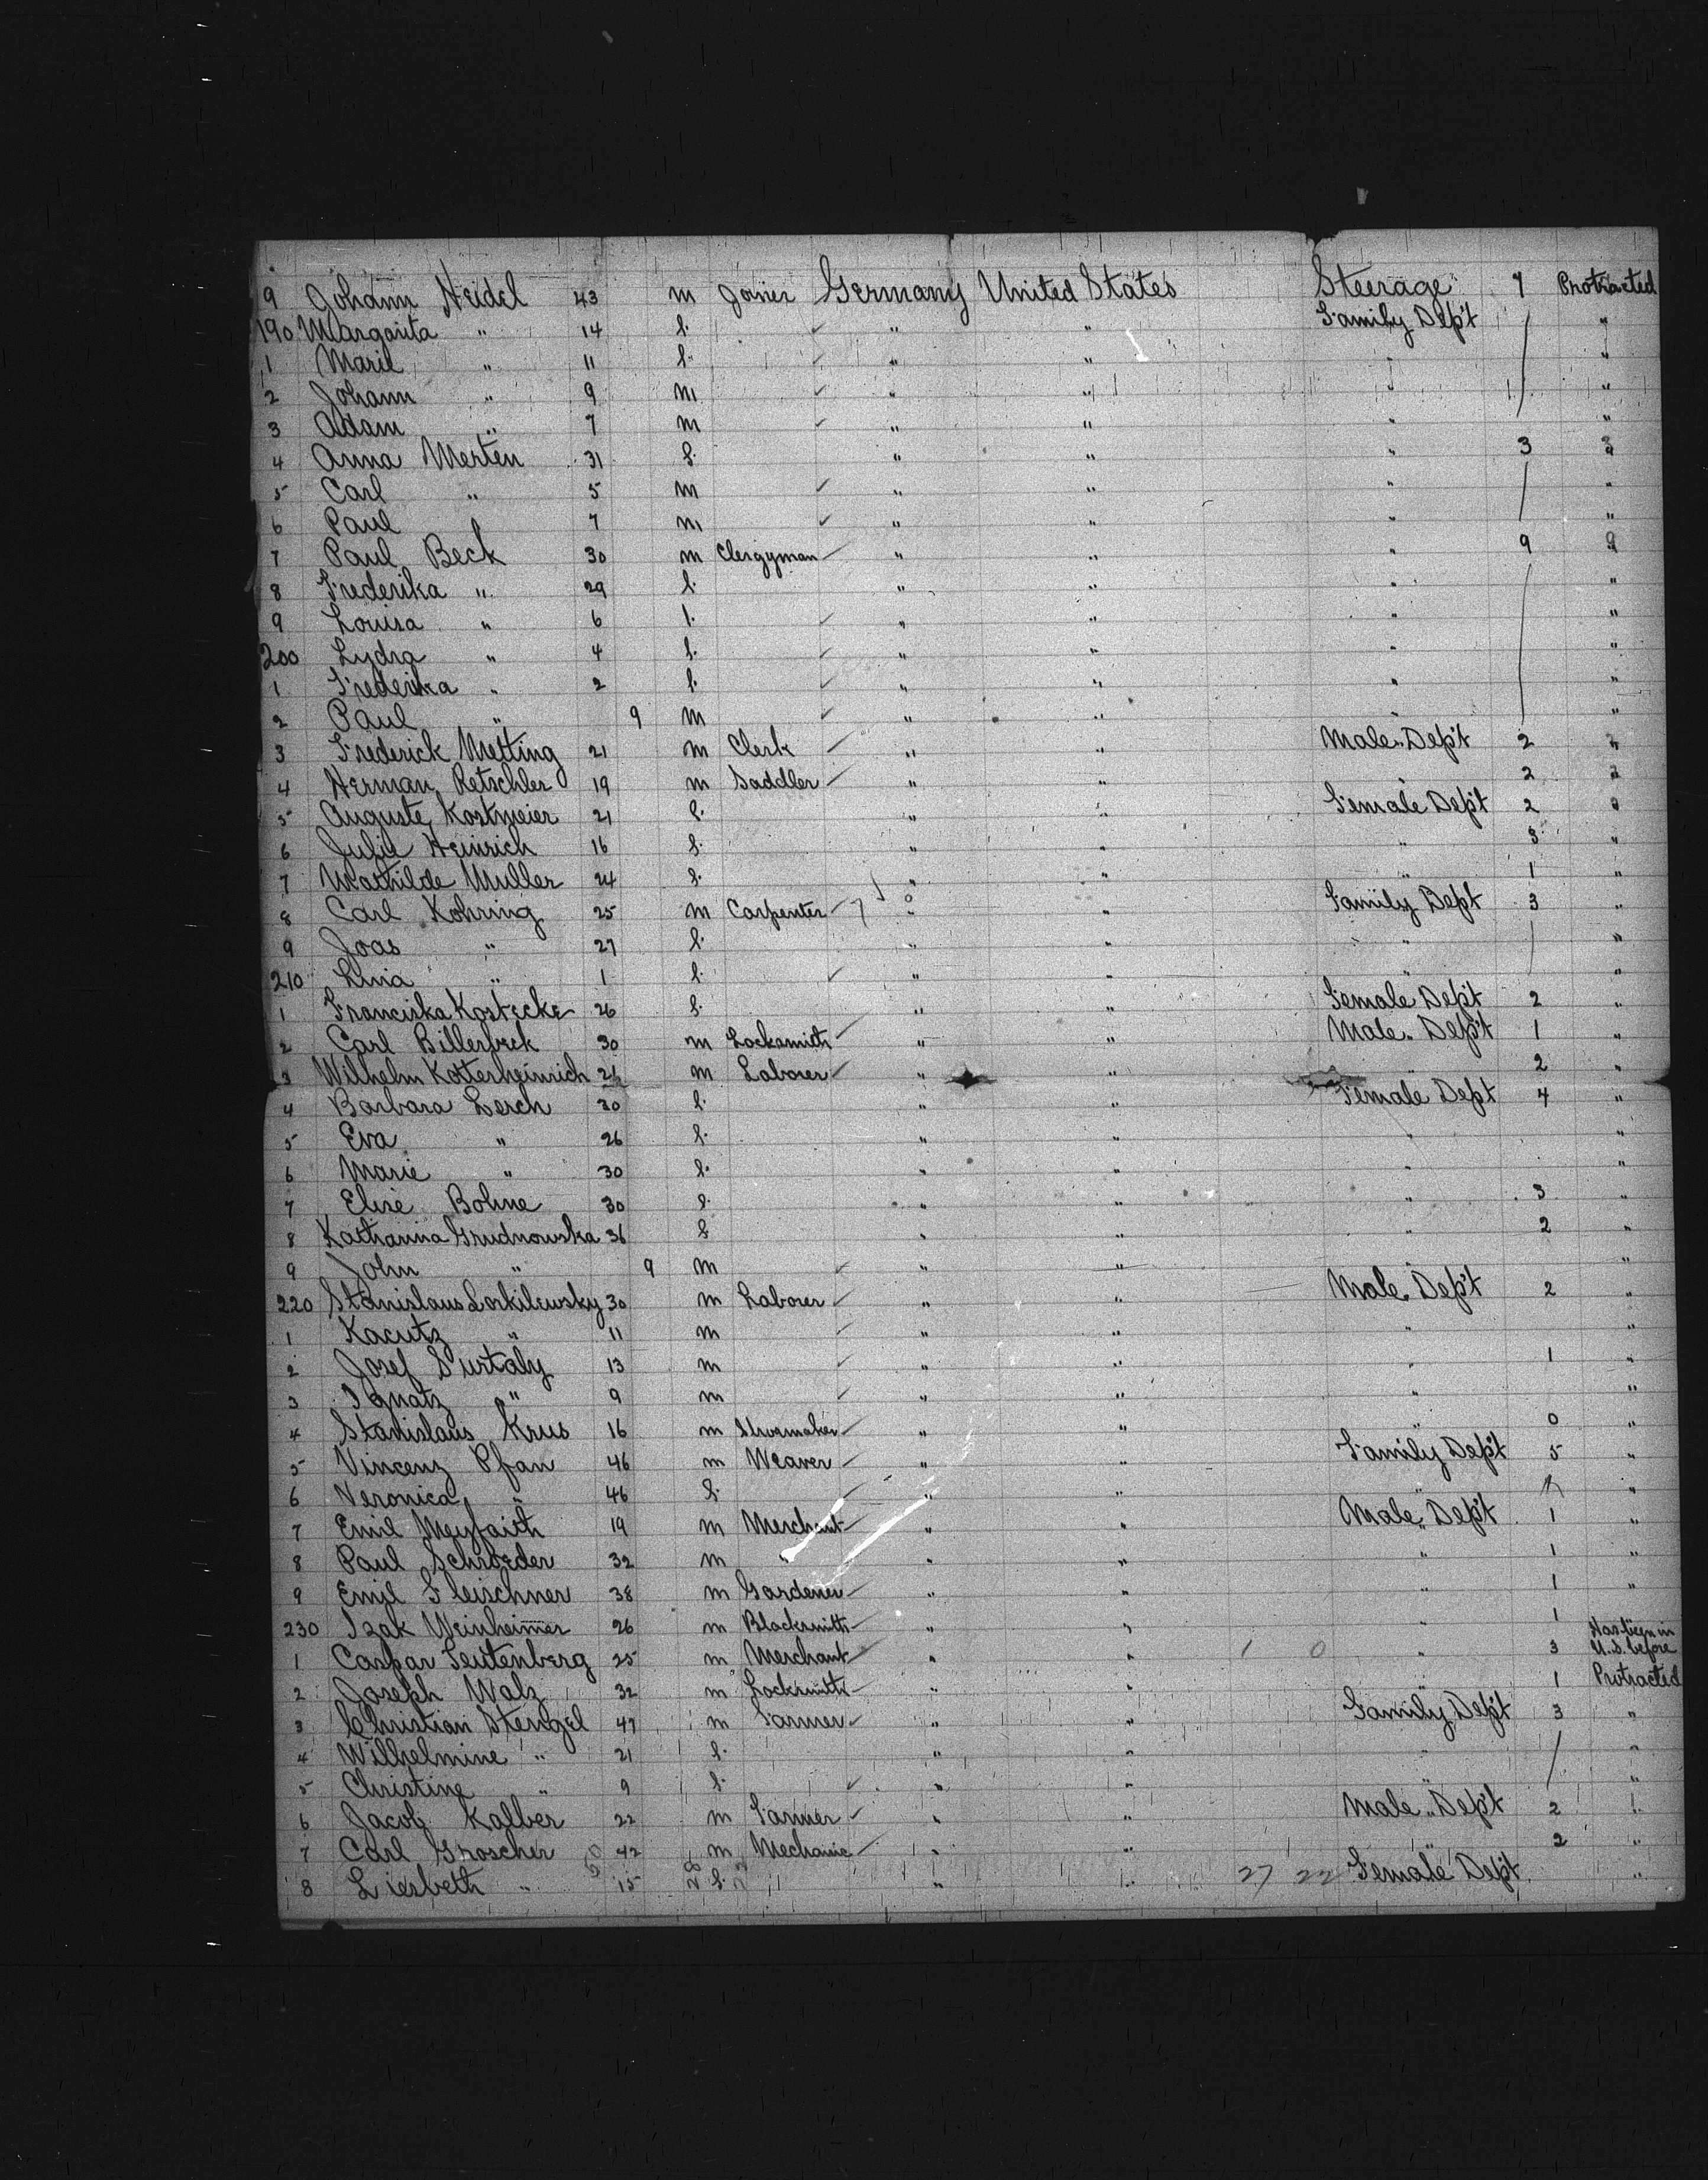 9 Johann Heidel 43 m Joiner Germany United States Steerage 7 Protracted
190 Margarita " 14 f. " " Family Dep't "
1 Marie " 11 f. " " " "
2 Johann " 9 m " " " "
3 Adam " 7 m " " " "
4 Anna Merten 31 f. " " " 3 "
5 Carl " 5 m " " " "
6 Paul " 7 m " " " "
7 Paul Beck 30 m Clergyman " " " 9 "
8 Frederika " 29 f. " " " "
9 Louisa " 6 f. " " " "
200 Lydia " 4 f. " " " "
1 Frederika " 2 f. " " " "
2 Paul " 9 m " " " "
3 Frederick Metting 21 m Clerk " " Male Dep't 2 "
4 Herman Retschler 19 m Saddler " " " 2 "
5 Auguste Kostmeier 21 f. " " Female Dep't 2 "
6 Julie Heinrich 16 f. " " " 3 "
7 Mathilde Muller 24 f. " " " 1 "
8 Carl Kohring 25 m Carpenter " " Family Dep't 3 "
9 Joas " 27 f. " " " "
210 Lina " 1 f. " " " "
1 Franciska Kostecke 26 f. " " Female Dep't 2 "
2 Carl Billerbeck 30 m Locksmith " " Male Dep't 1 "
3 Wilhelm Kotterheinrich m Laborer " " " 2 "
4 Barbara Lerch 30 f. " " Female Dep't 4 "
5 Eva " 26 f. " " " "
6 Marie " 30 f. " " " "
7 Elise Bohne 30 f. " " " 3 "
8 Katharina Grudnowska 36 f " " " 2 "
9 John " 9 m " " "
220 Stanislaus Loskilewsky 30 m Laborer " " Male Dep't 2 "
1 Kacutz " 11 m " " " "
2 Josef Surtaly 13 m " " " 1 "
3 Ignatz " 9 m " " " "
4 Stanislaus Krus 16 m Shoemaker " " " 0 "
5 Vincenz Pfan 46 m Weaver " " Family Dep't 5 "
6 Veronica " 46 f. " " " "
7 Emil Meyfaith 19 m Merchant " " Male Dep't 1 "
8 Paul Schroeder 32 m " " " " 1 "
9 Emil Fleischner 38 m Gardener " " " 1 "
230 Izak Weinheimer 26 m Blacksmith " " " 1 Has been in
1 Caspar Teutenberg 25 m Merchant " " 1 0 " 3 U.S. before
2 Joseph Walz 32 m Locksmith " " 1 Protracted
3 Christian Stengel 47 m Farmer " " Family Dep't 3 "
4 Wilhelmine " 21 f. " " " "
5 Christine " 9 f. " " " "
6 Jacob Kalber 22 m Farmer " " Male Dep't 2 "
7 Carl Groscher 42 m Mechanic " " " 2 "
8 Liesbeth " 15 f. " " 27 22 Female Dep't "